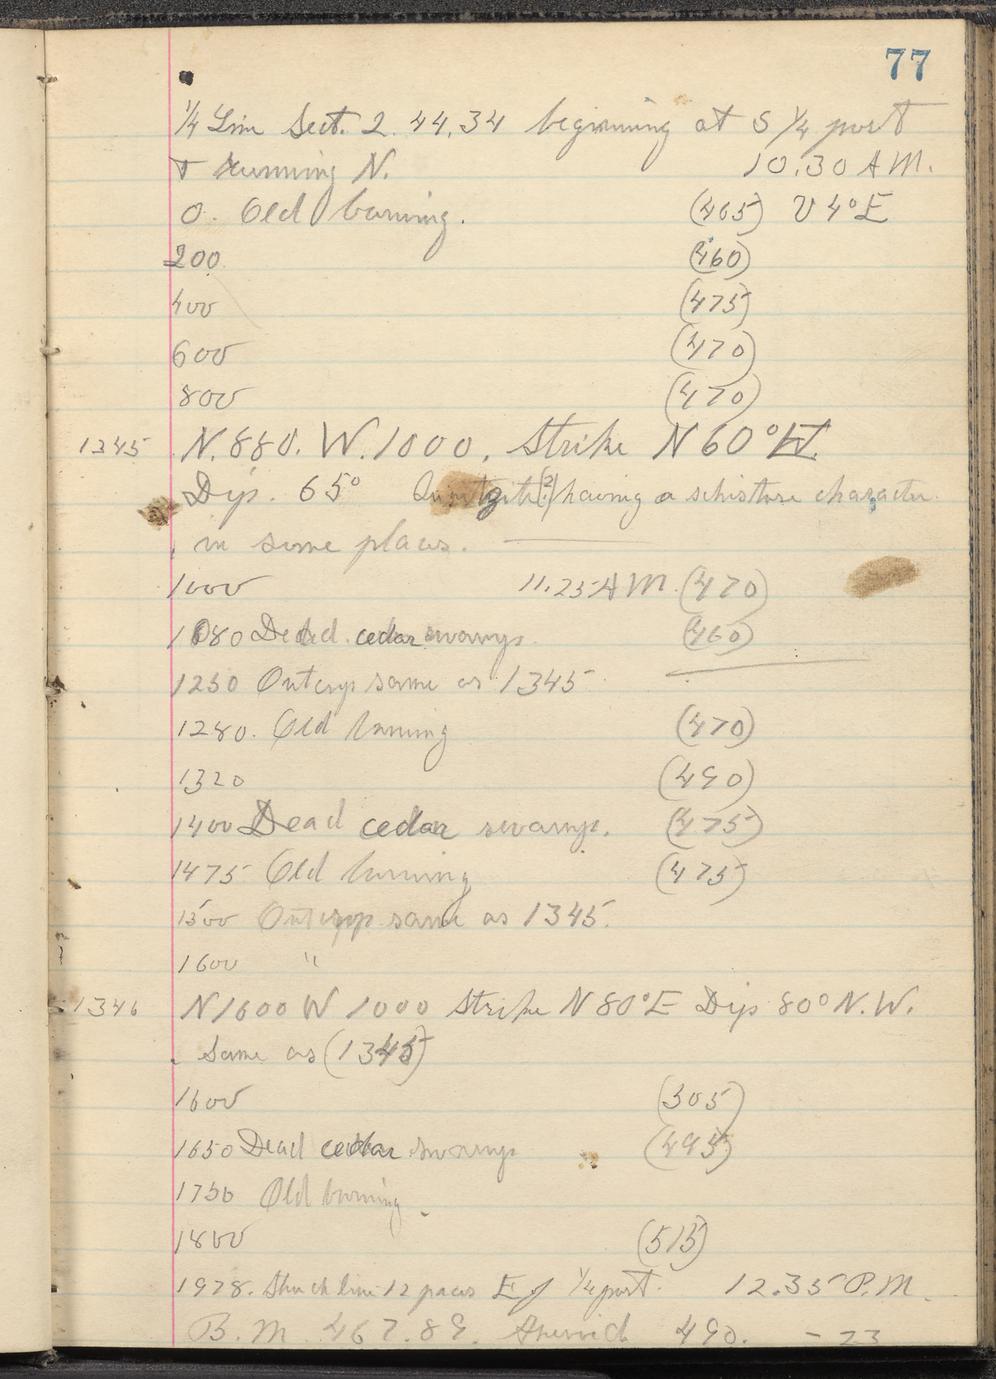 77
1/4 Line Sect. 2. 44.34 beginning at S 1/4 post
& running N. 10.30 A M.
0. Old burning. (465) V 4° E
200 (460)
400 (475)
600 (470)
800 (470)
1345 N. 880. W. 1000. Strike N 60° W.
Dip. 65° Quartzite (?) having a schistose character
in some places.
1000 11.25 A M. (470)
1080 Dead cedar swamp. (460)
1250 Outcrop same as 1345
1280. Old burning (470)
1320 (490)
1400 Dead cedar swamp. (475)
1475 Old burning (475)
1500 Outcrop same as 1345.
1600 "
1346 N 1600 W 1000 Strike N 80° E Dip 80° N.W.
Same as (1345)
1600 (505)
1650 Dead cedar swamp (495)
1750 Old burning.
1800 (515)
1978. Struck line 12 paces E of 1/4 post. 12.35 P.M.
B.M. 467.89. 490. - 23